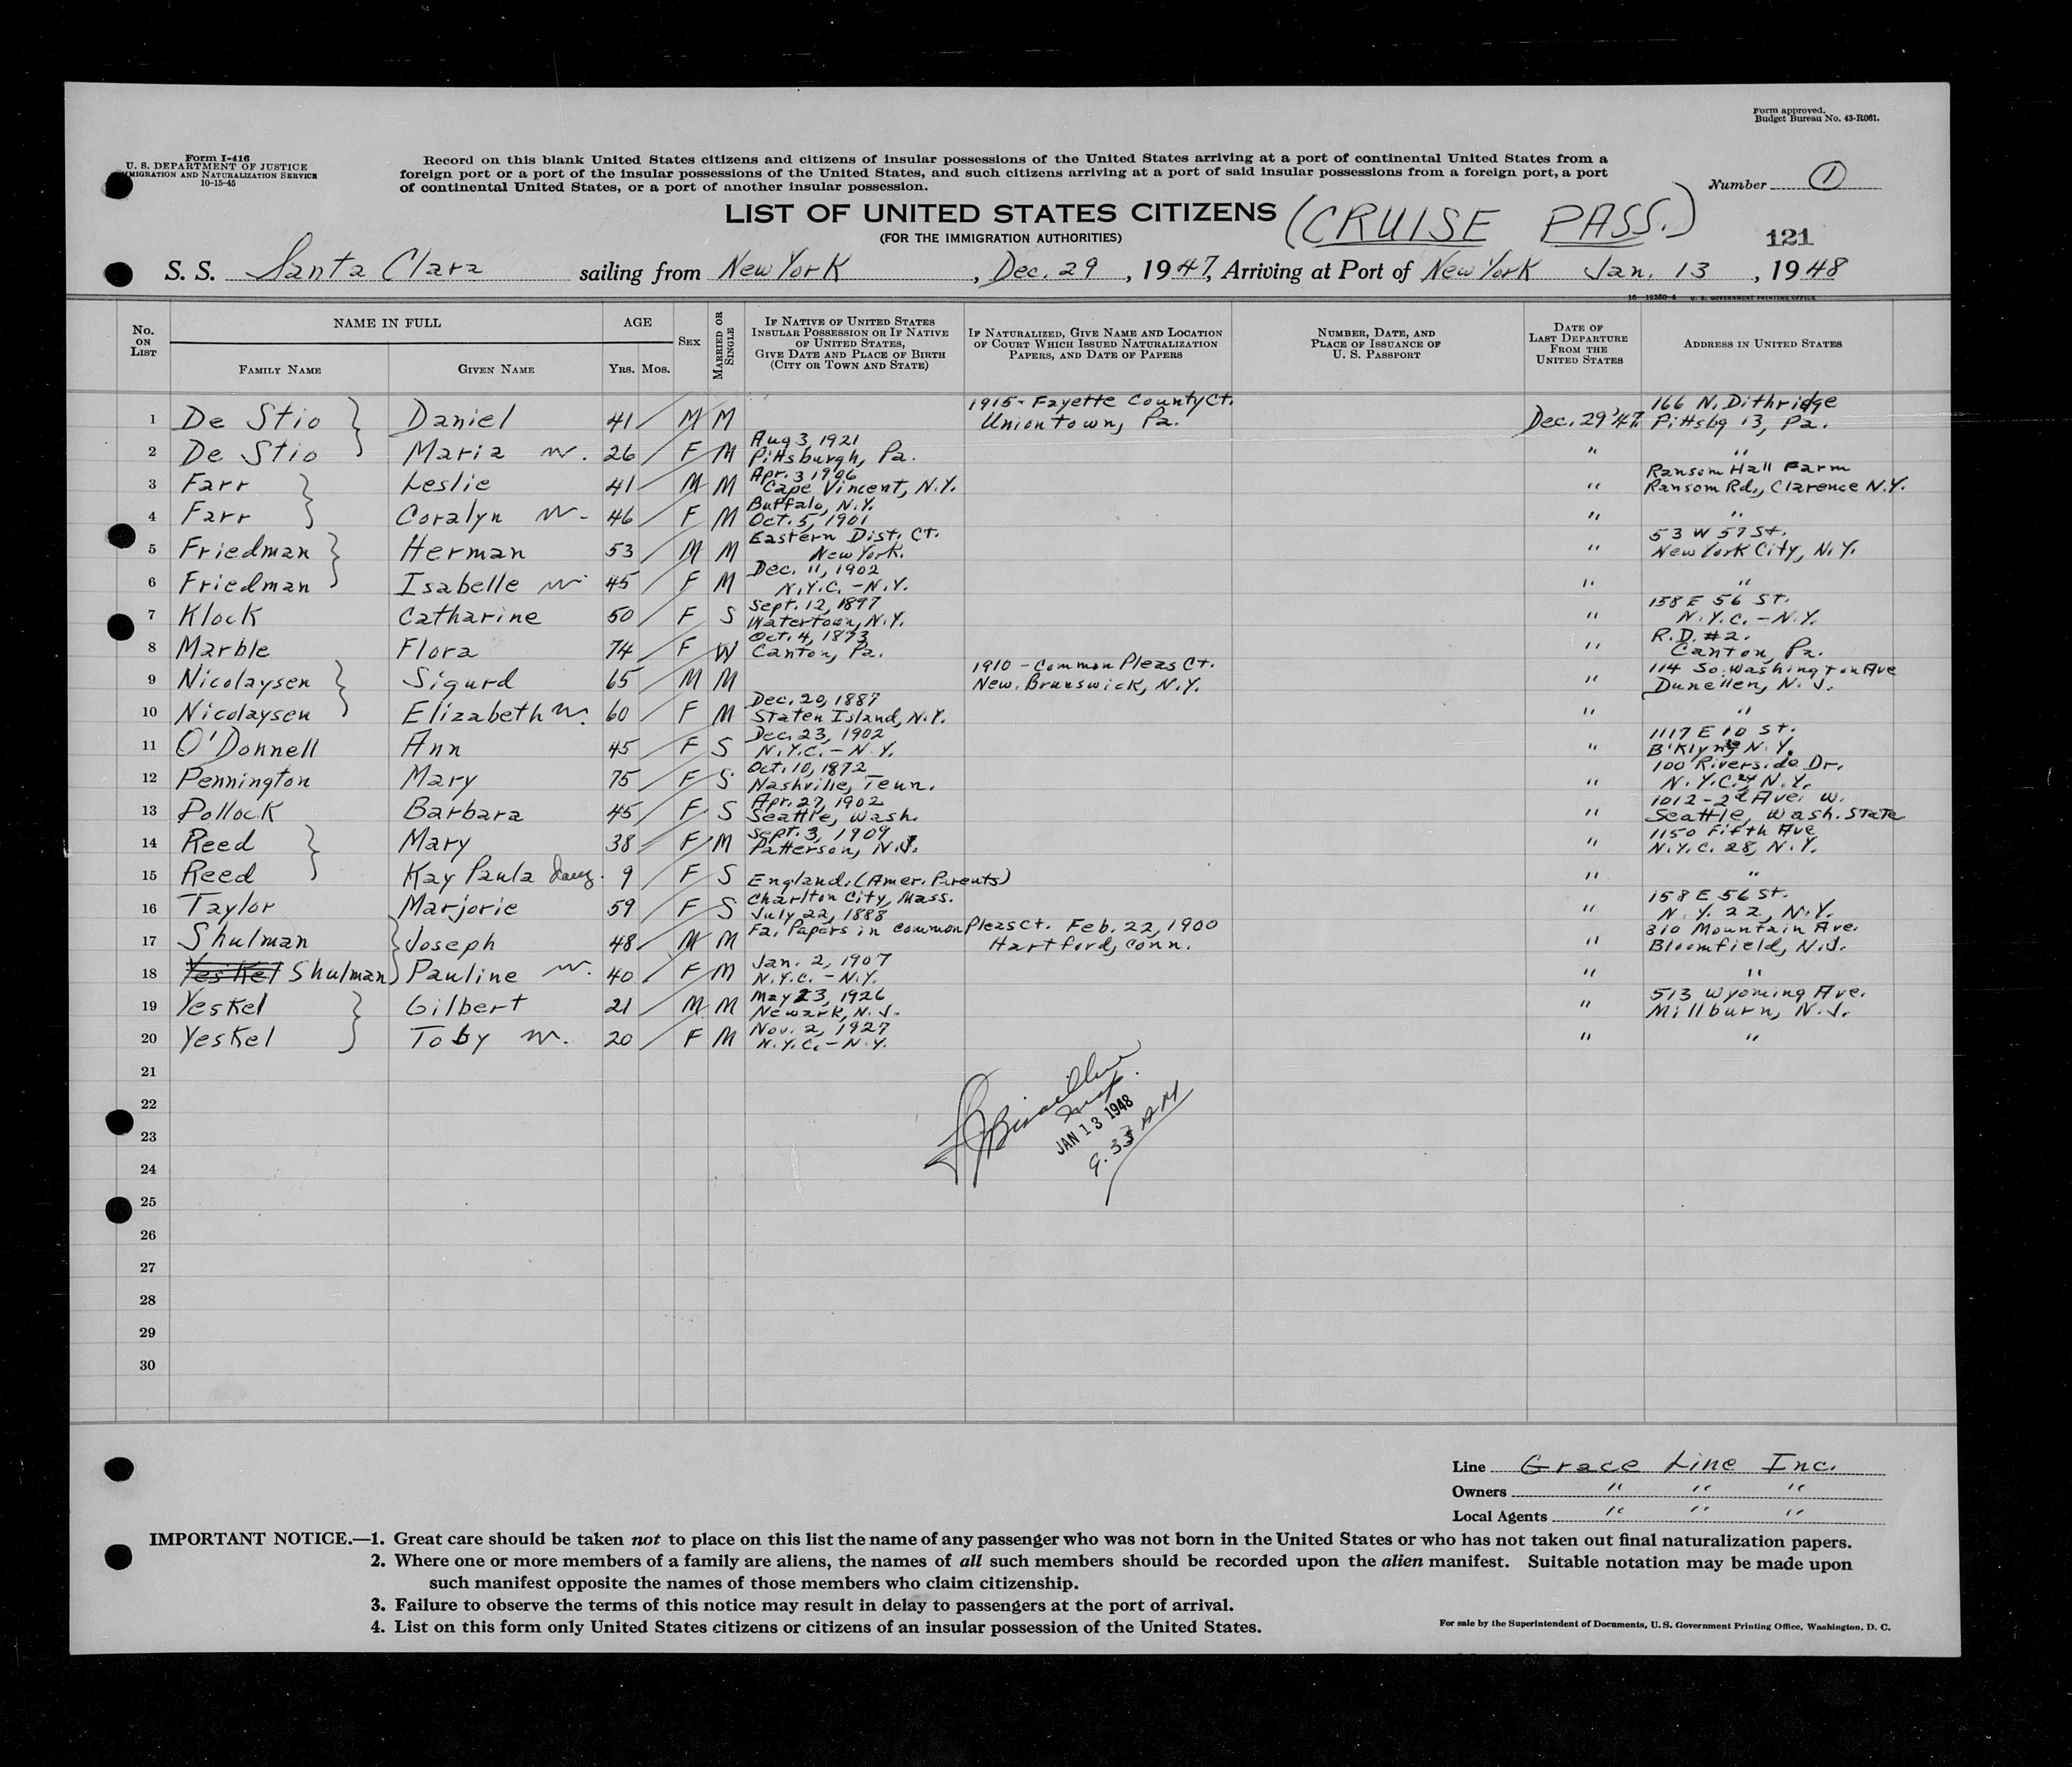 Form approved.
Budget Bureau No. 43-R061.
Form I-416
U. S. DEPARTMENT OF JUSTICE
IMMIGRATION AND NATURALIZATION SERVICE
10-15-45
Record on this blank United States citizens and citizens of insular possessions of the United States arriving at a port of continental United States from a
foreign port or a port of the insular possessions of the United States, and such citizens arriving at a port of said insular possessions from a foreign port, a port
of continental United States, or a port of another insular possession.
Number 1
LIST OF UNITED STATES CITIZENS (CRUISE PASS.)
(FOR THE IMMIGRATION AUTHORITIES)
121
S. S. Santa Clara sailing from New York, Dec. 29, 1947, Arriving at Port of New York Jan. 13, 1948
16—12350-4 U. S. GOVERNMENT PRINTING OFFICE
No. on List
NAME IN FULL
Family Name
Given Name
AGE
Yrs. Mos.
Sex
Married or Single
If Native of United States Insular Possession or if Native of United States, Give Date and Place of Birth (City or Town and State)
If Naturalized, Give Name and Location of Court Which Issued Naturalization Papers, and Date of Papers
Number, Date, and Place of Issuance of U. S. Passport
Date of Last Departure From the United States
Address in United States
1 De Stio Daniel 41 M M 1915 - Fayette County Ct. Uniontown, Pa. Dec. 29 '47 166 N. Dithridge Pittsbg 13, Pa.
2 De Stio Maria W. 26 F M Aug 3, 1921 Pittsburgh, Pa. " "
3 Farr Leslie 41 M M Apr. 3 1906 Cape Vincent, N.Y. " Ransom Hall Farm Ransom Rd., Clarence N.Y.
4 Farr Coralyn W- 46 F M Buffalo, N.Y. Oct. 5, 1901 " "
5 Friedman Herman 53 M M Eastern Dist. Ct. New York. " 53 W 57 St. New York City, N.Y.
6 Friedman Isabelle W. 45 F M Dec. 11, 1902 N.Y.C. - N.Y. " "
7 Klock Catharine 50 F S Sept. 12, 1897 Watertown, N.Y. " 158 E 56 St. N.Y.C. - N.Y.
8 Marble Flora 74 F W Oct. 4, 1873 Canton, Pa. " R.D. #2. Canton, Pa.
9 Nicolaysen Sigurd 65 M M 1910 - Common Pleas Ct. New. Brunswick, N.Y. " 114 So. Washington Ave Dunellen, N.J.
10 Nicolaysen Elizabeth W. 60 F M Dec. 20, 1887 Staten Island, N.Y. " "
11 O'Donnell Ann 45 F S Dec. 23, 1902 N.Y.C. - N.Y. " 1117 E 10 St. B'klyn N.Y.
12 Pennington Mary 75 F S Oct. 10, 1872 Nashville, Tenn. " 100 Riverside Dr. N.Y.C. 24 N.Y.
13 Pollock Barbara 45 F S Apr. 27, 1902 Seattle, Wash. " 1012 - 2d Ave. W. Seattle, Wash. State
14 Reed Mary 38 F M Sept. 3, 1909 Patterson, N.J. " 1150 Fifth Ave N.Y.C. 28, N.Y.
15 Reed Kay Paula Daug. 9 F S England. (Amer. Parents) " "
16 Taylor Marjorie 59 F S Charlton City, Mass. July 22, 1888 " 158 E 56 St. N.Y. 22, N.Y.
17 Shulman Joseph 48 M M Fa. Papers in Common Pleas Ct. Feb. 22, 1900 Hartford, Conn. " 310 Mountain Ave. Bloomfield, N.J.
18 Yeskel Shulman Pauline W. 40 F M Jan. 2, 1907 N.Y.C. - N.Y. " "
19 Yeskel Gilbert 21 M M May 23, 1926 Newark, N.J. " 513 Wyoming Ave. Millburn, N.J.
20 Yeskel Toby W. 20 F M Nov. 2, 1927 N.Y.C. - N.Y. " "
21
22
JAN 13 1948
23
9.33 AM
24
25
26
27
28
29
30
Line Grace Line Inc.
Owners " " "
Local Agents " " "
IMPORTANT NOTICE.—1. Great care should be taken not to place on this list the name of any passenger who was not born in the United States or who has not taken out final naturalization papers.
2. Where one or more members of a family are aliens, the names of all such members should be recorded upon the alien manifest. Suitable notation may be made upon
such manifest opposite the names of those members who claim citizenship.
3. Failure to observe the terms of this notice may result in delay to passengers at the port of arrival.
4. List on this form only United States citizens or citizens of an insular possession of the United States.
For sale by the Superintendent of Documents, U. S. Government Printing Office, Washington, D. C.